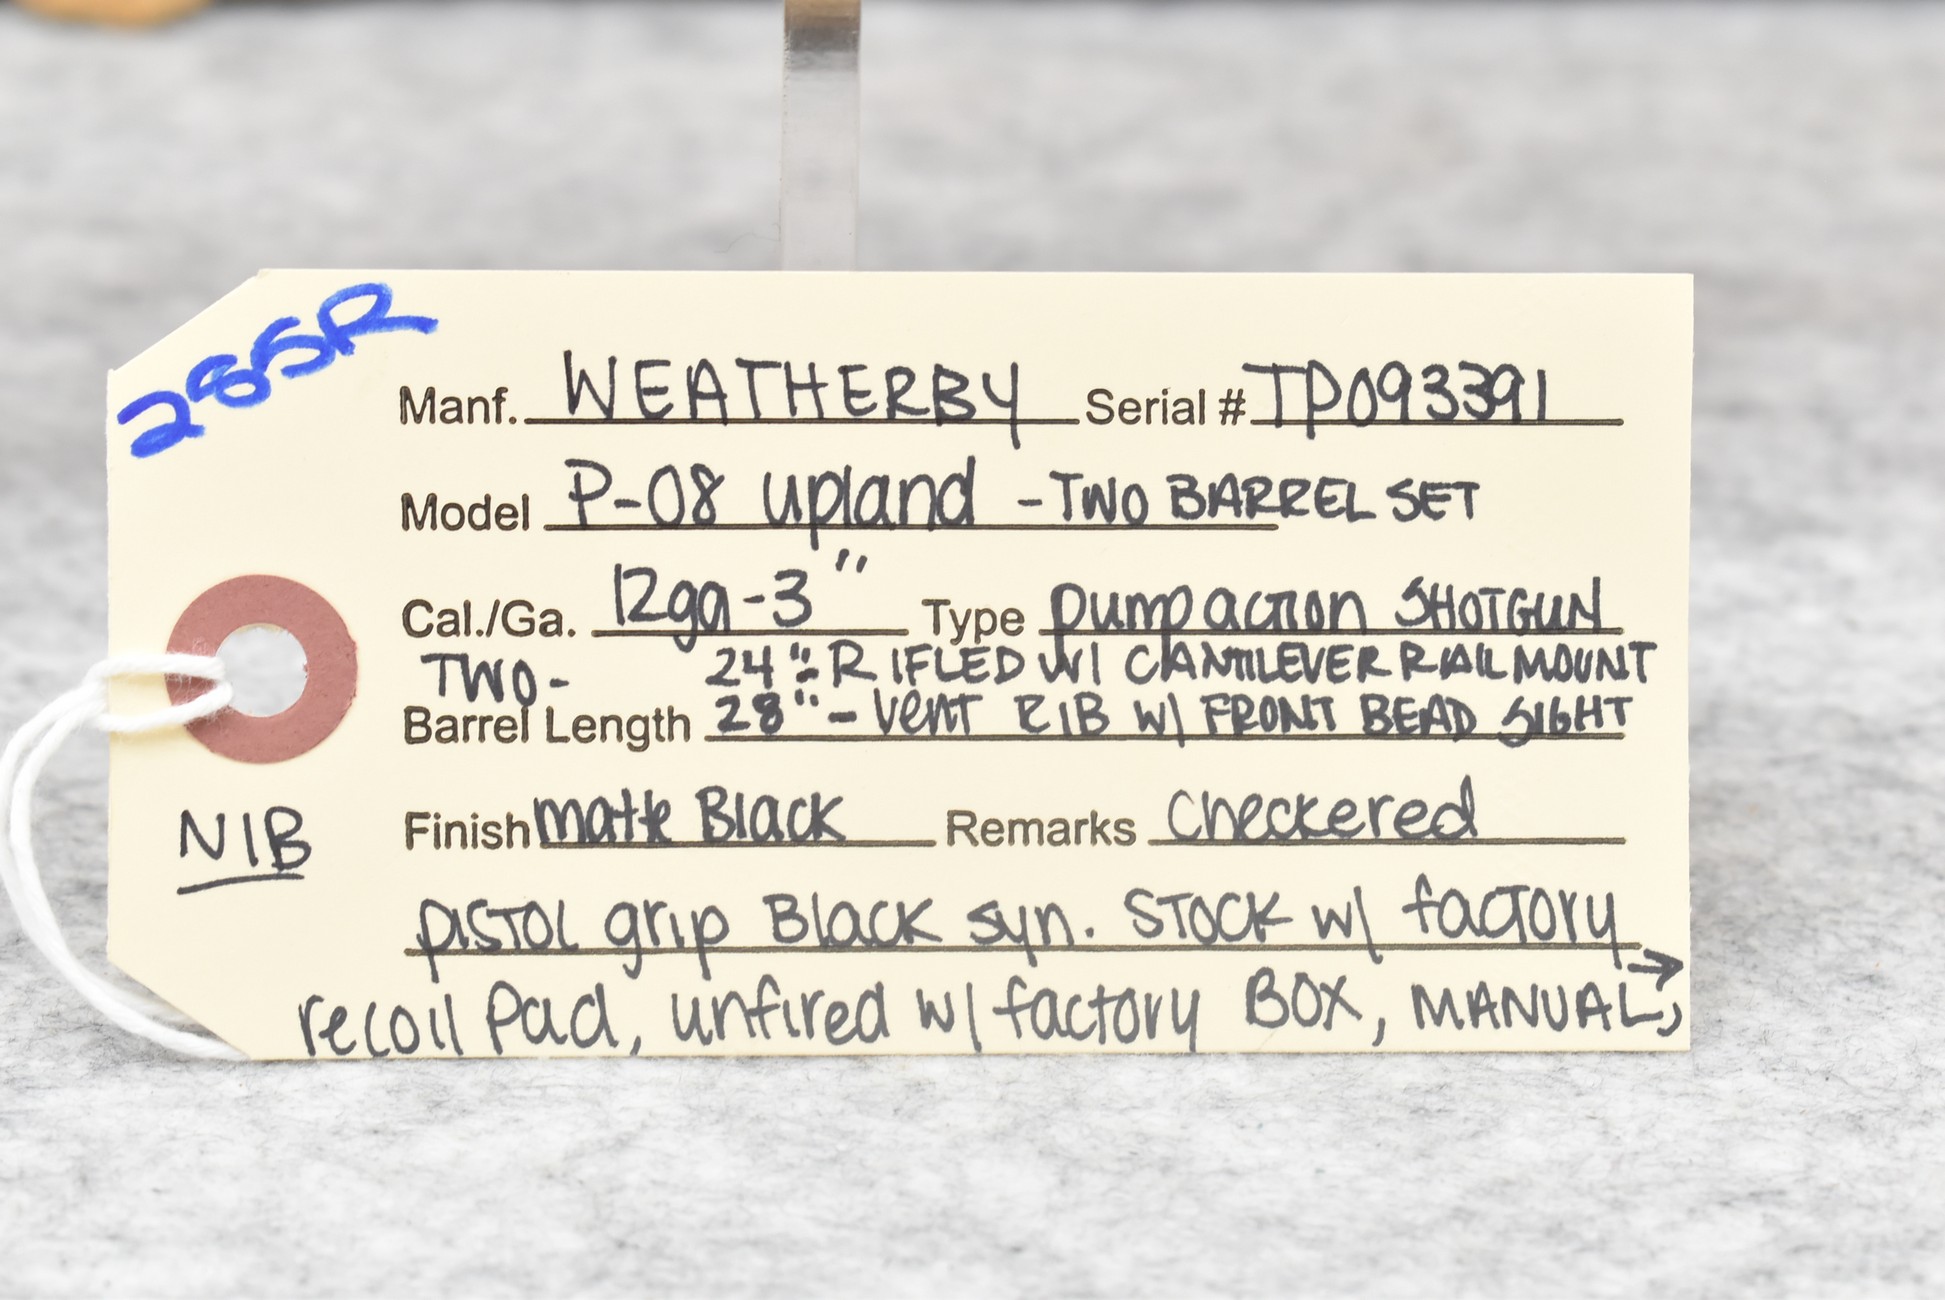 285R
Manf. WEATHERBY Serial # TP093391
Model P-08 upland - TWO BARREL SET
Cal./Ga. 12ga-3" Type pump action SHOTGUN
TWO- 24"- RIFLED W/ CANTILEVER RAIL MOUNT
Barrel Length 28" - vent RIB W/ FRONT BEAD SIGHT
NIB
Finish matte Black Remarks checkered
PISTOL grip Black syn. STOCK w/ factory →
recoil Pad, unfired w/ factory BOX, MANUAL,